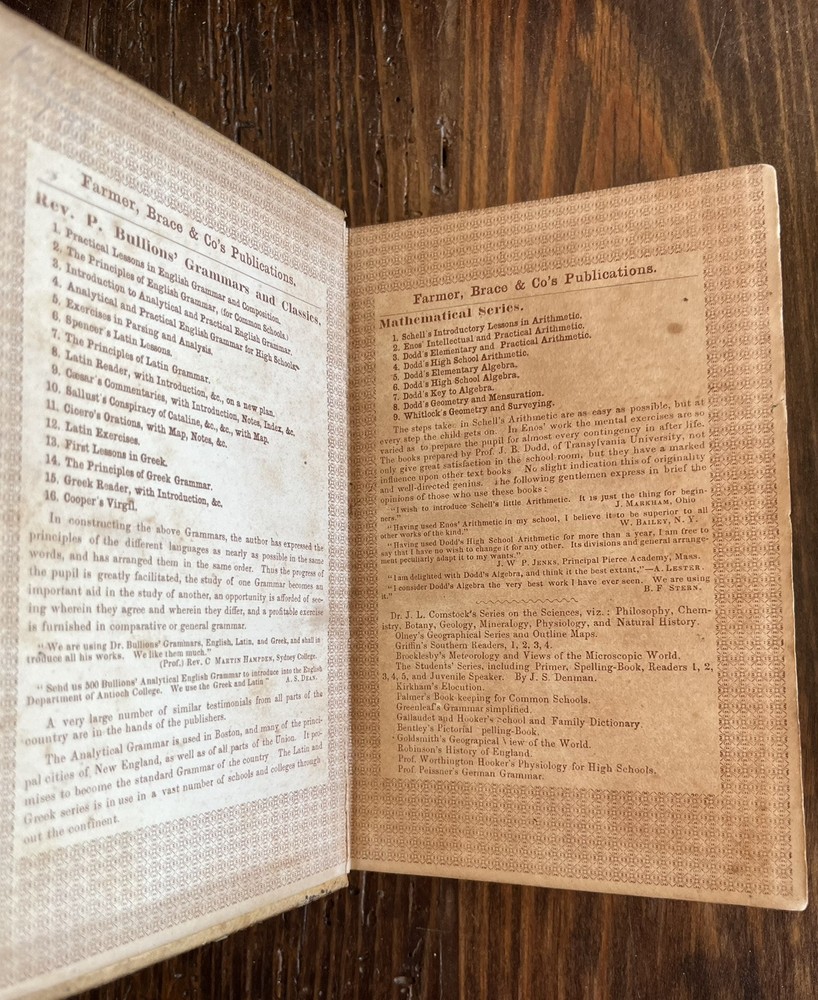 Farmer, Brace & Co's Publications.
Rev. P. Bullions' Grammars and Classics.
1. Practical Lessons in English Grammar and Composition.
2. The Principles of English Grammar, (for Common Schools.)
3. Introduction to Analytical and Practical English Grammar.
4. Analytical and Practical English Grammar for High Schools.
5. Exercises in Parsing and Analysis.
6. Spencer's Latin Lessons.
7. The Principles of Latin Grammar.
8. Latin Reader, with Introduction, &c., on a new plan.
9. Cæsar's Commentaries, with Introduction, Notes, Index, &c.
10. Sallust's Conspiracy of Cataline, &c., &c., with Map.
11. Cicero's Orations, with Map, Notes, &c.
12. Latin Exercises.
13. First Lessons in Greek.
14. The Principles of Greek Grammar.
15. Greek Reader, with Introduction, &c.
16. Cooper's Virgil.
In constructing the above Grammars, the author has expressed the
principles of the different languages as nearly as possible in the same
words, and has arranged them in the same order. Thus the progress of
the pupil is greatly facilitated, the study of one Grammar becomes an
important aid in the study of another, an opportunity is afforded of see-
ing wherein they agree and wherein they differ, and a profitable exercise
is furnished in comparative or general grammar.
"We are using Dr. Bullions' Grammars, English, Latin, and Greek, and shall in
troduce all his works. We like them much."
(Prof.) Rev. C Martin Hampden, Sydney College.
"Send us 500 Bullions' Analytical English Grammar to introduce into the English
Department of Antioch College. We use the Greek and Latin" A. S. Dean.
A very large number of similar testimonials from all parts of the
country are in the hands of the publishers.
The Analytical Grammar is used in Boston, and many of the princi-
pal cities of New England, as well as of all parts of the Union. It pro-
mises to become the standard Grammar of the country The Latin and
Greek series is in use in a vast number of schools and colleges through
out the continent.
Farmer, Brace & Co's Publications.
Mathematical Series.
1. Schell's Introductory Lessons in Arithmetic.
2. Enos' Intellectual and Practical Arithmetic.
3. Dodd's Elementary and Practical Arithmetic.
4. Dodd's High School Arithmetic.
5. Dodd's Elementary Algebra.
6. Dodd's High School Algebra.
7. Dodd's Key to Algebra.
8. Dodd's Geometry and Mensuration.
9. Whitlock's Geometry and Surveying.
The steps taken in Schell's Arithmetic are as easy as possible, but at
every step the child gets on. In Enos' work the mental exercises are so
varied as to prepare the pupil for almost every contingency in after life.
The books prepared by Prof. J. B. Dodd, of Transylvania University, not
only give great satisfaction in the school-room, but they have a marked
influence upon other text books No slight indication this of originality
and well-directed genius. The following gentlemen express in brief the
opinions of those who use these books:
"I wish to introduce Schell's little Arithmetic. It is just the thing for begin-
ners." J. Markham, Ohio
"Having used Enos' Arithmetic in my school, I believe it to be superior to all
other works of the kind." W. Bailey, N. Y.
"Having used Dodd's High School Arithmetic for more than a year, I am free to
say that I have no wish to change it for any other. Its divisions and general arrange-
ment peculiarly adapt it to my wants."
J. W P Jenks, Principal Pierce Academy, Mass.
"I am delighted with Dodd's Algebra, and think it the best extant,"—A. Lester.
"I consider Dodd's Algebra the very best work I have ever seen. We are using
it." B. F Stern.
Dr. J. L. Comstock's Series on the Sciences, viz.: Philosophy, Chem-
istry, Botany, Geology, Mineralogy, Physiology, and Natural History.
Olney's Geographical Series and Outline Maps.
Griffin's Southern Readers, 1, 2, 3, 4.
Brocklesby's Meteorology and Views of the Microscopic World.
The Students' Series, including Primer, Spelling-Book, Readers 1, 2,
3, 4, 5, and Juvenile Speaker. By J. S. Denman.
Kirkham's Elocution.
Palmer's Book keeping for Common Schools.
Greenleaf's Grammar simplified.
Gallaudet and Hooker's School and Family Dictionary.
Bentley's Pictorial pelling-Book.
Goldsmith's Geograpical View of the World.
Robinson's History of England.
Prof. Worthington Hooker's Physiology for High Schools.
Prof Peissner's German Grammar.